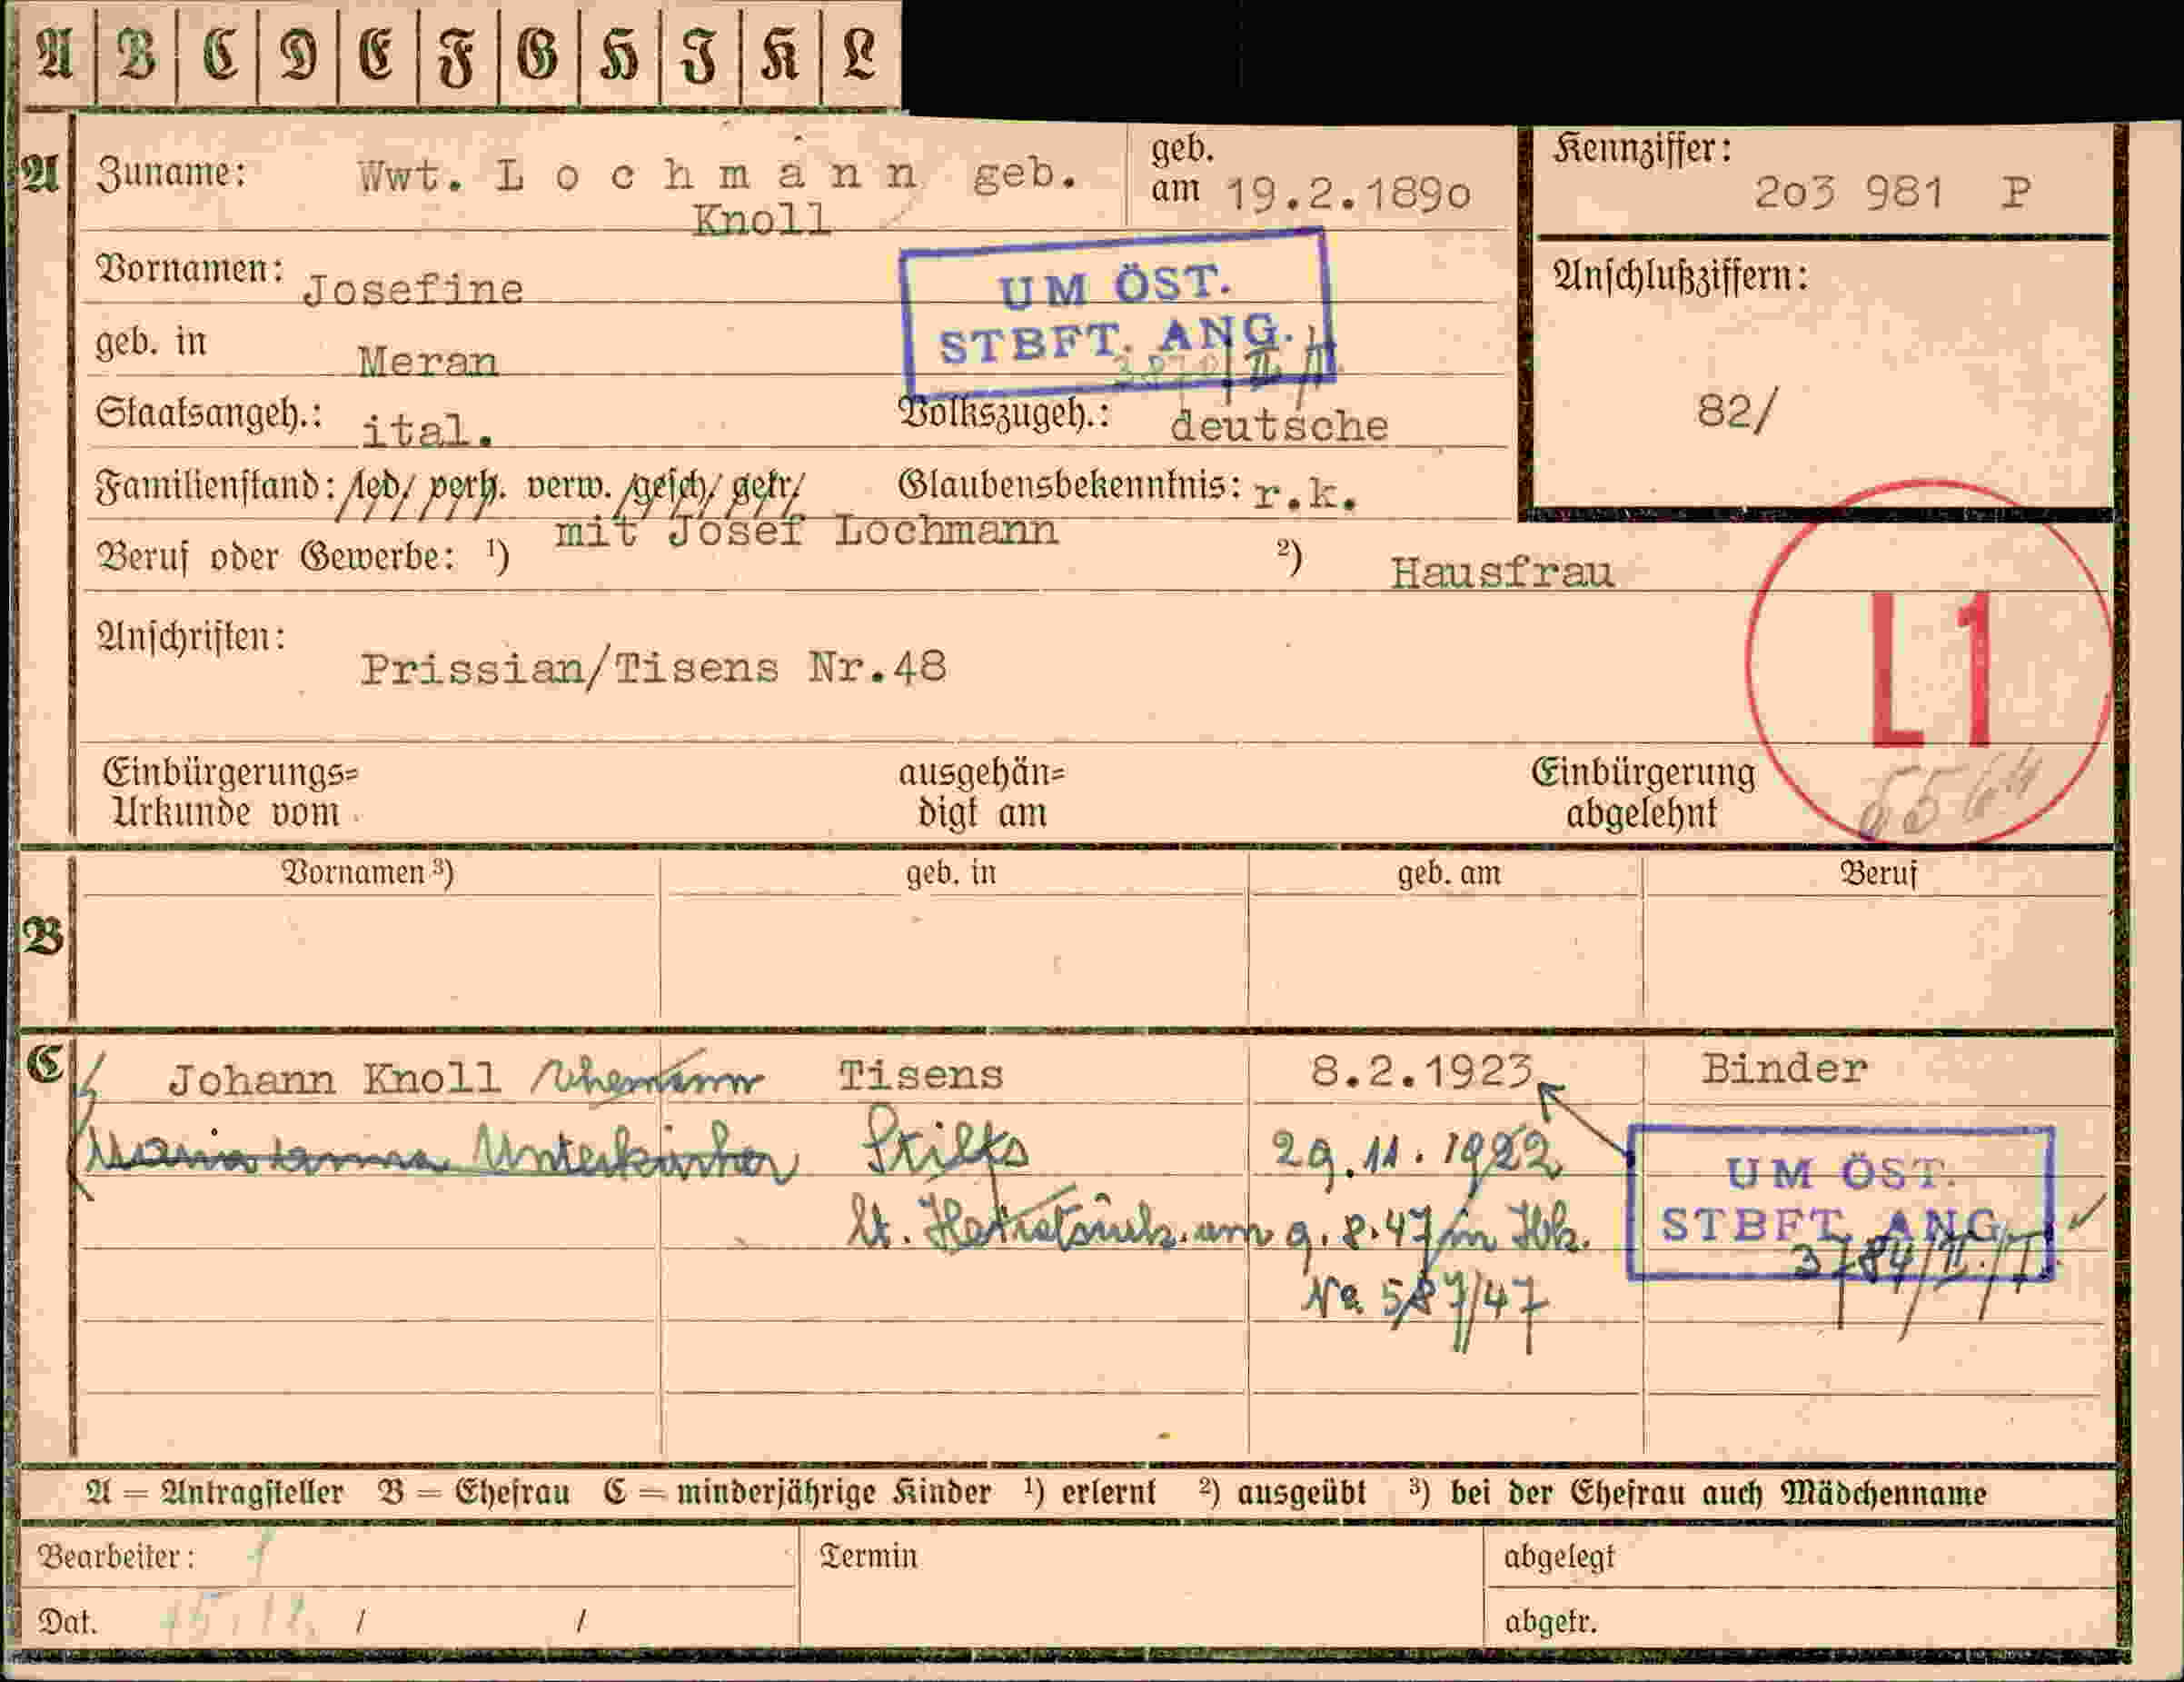 A B C D E F G H I K L
A Zuname: Wwt. L o c h m a n n geb. Knoll
geb. am 19.2.189o
Kennziffer: 2o3 981 P
Vornamen: Josefine
UM ÖST.
STBFT. ANG.
geb. in Meran
Anschlußziffern:
82/
Staatsangeh.: ital. Volkszugeh.: deutsche
Familienstand: led/ verh. verw. gesch/ getr/ Glaubensbekenntnis: r.k.
mit Josef Lochmann
Beruf oder Gewerbe: ¹) ²) Hausfrau
L1
Anschriften: Prissian/Tisens Nr.48
Einbürgerungs=
Urkunde vom
ausgehän=
digt am
Einbürgerung
abgelehnt
B Vornamen ³) geb. in geb. am Beruf
C Johann Knoll Tisens 8.2.1923 Binder
Unterkircher Stilfs 29.11.1922
UM ÖST.
STBFT. ANG.
3784/II./I.
lt. am 9.8.47 in
No 587/47
A = Antragsteller B = Ehefrau C = minderjährige Kinder ¹) erlernt ²) ausgeübt ³) bei der Ehefrau auch Mädchenname
Bearbeiter: Termin abgelegt
Dat. / / abgetr.